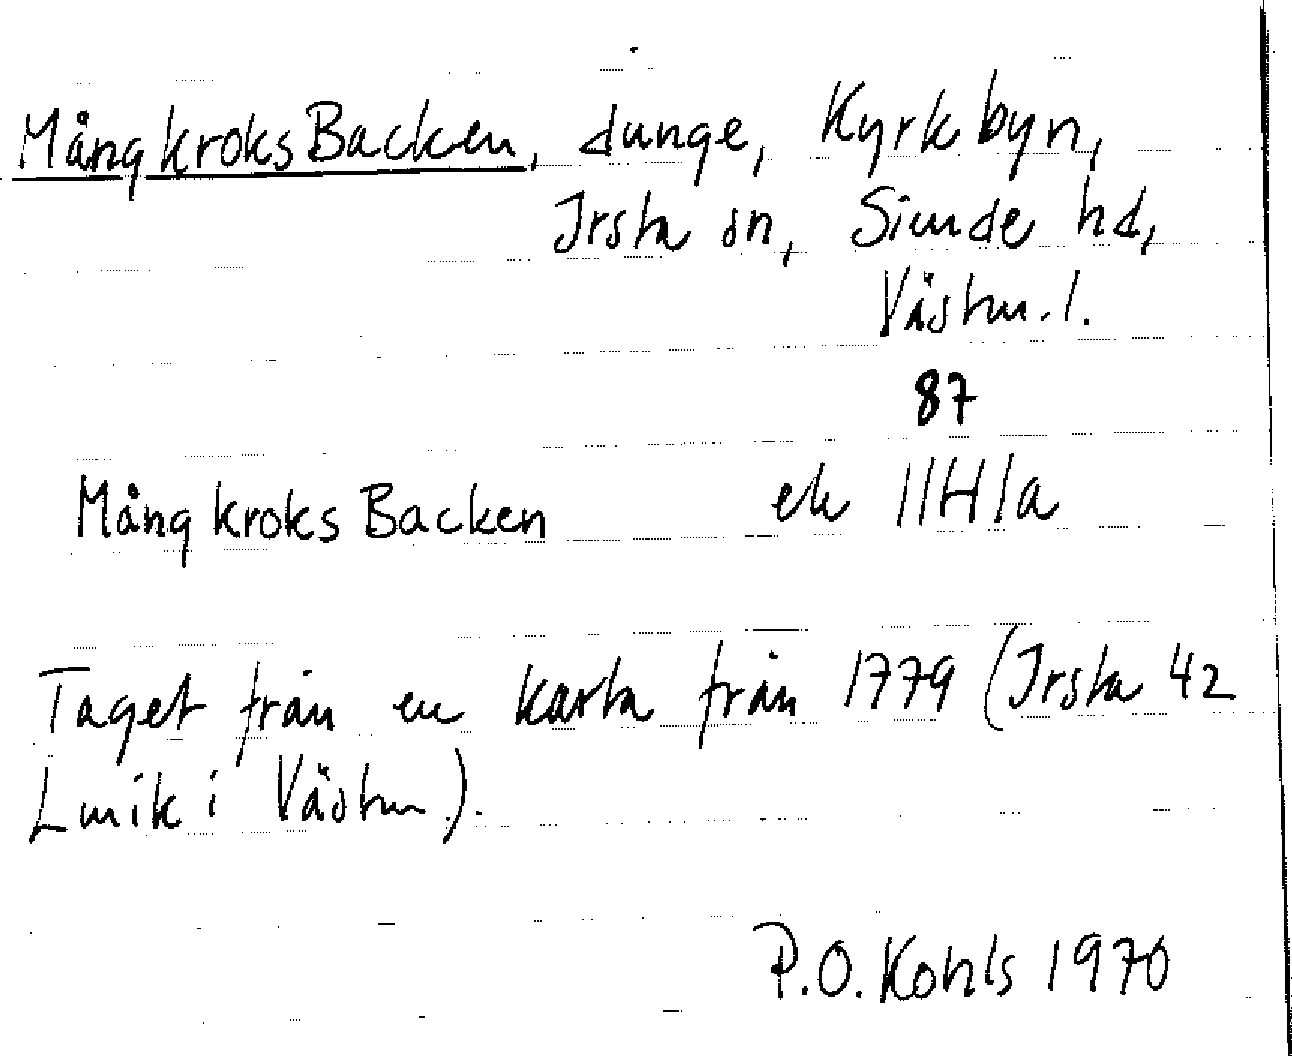 MångkroksBacken, dunge, Kyrkbyn,
Irsta sn, Siende hd,
Västm.l.
87
MångkroksBacken ek 11H1a
Taget från en karta från 1779 (Irsta 42
Lmik i Västm).
P.O. Kohls 1970